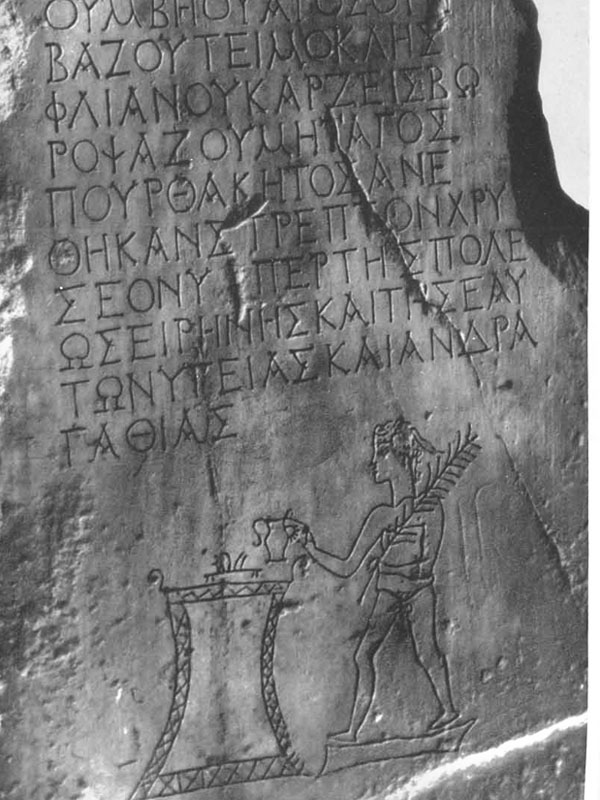 ΟΥΜΒΗΟΥΑΡΟΣΟΥ
ΒΑΖΟΥΤΕΙΜΟΚΛΗΣ
ΦΛΙΑΝΟΥΚΑΡΖΕΙΣΒΩ
ΡΟΨΑΖΟΥΜΗΤΑΓΟΣ
ΠΟΥΡΘΑΚΗΤΟΣΑΝΕ
ΘΗΚΑΝΣΤΡΕΠΤΟΝΧΡΥ
ΣΕΟΝΥΠΕΡΤΗΣΠΟΛΕ
ΩΣΕΙΡΗΝΗΣΚΑΙΤΗΣΕΑΥ
ΤΩΝΥΓΕΙΑΣΚΑΙΑΝΔΡΑ
ΓΑΘΙΑΣ